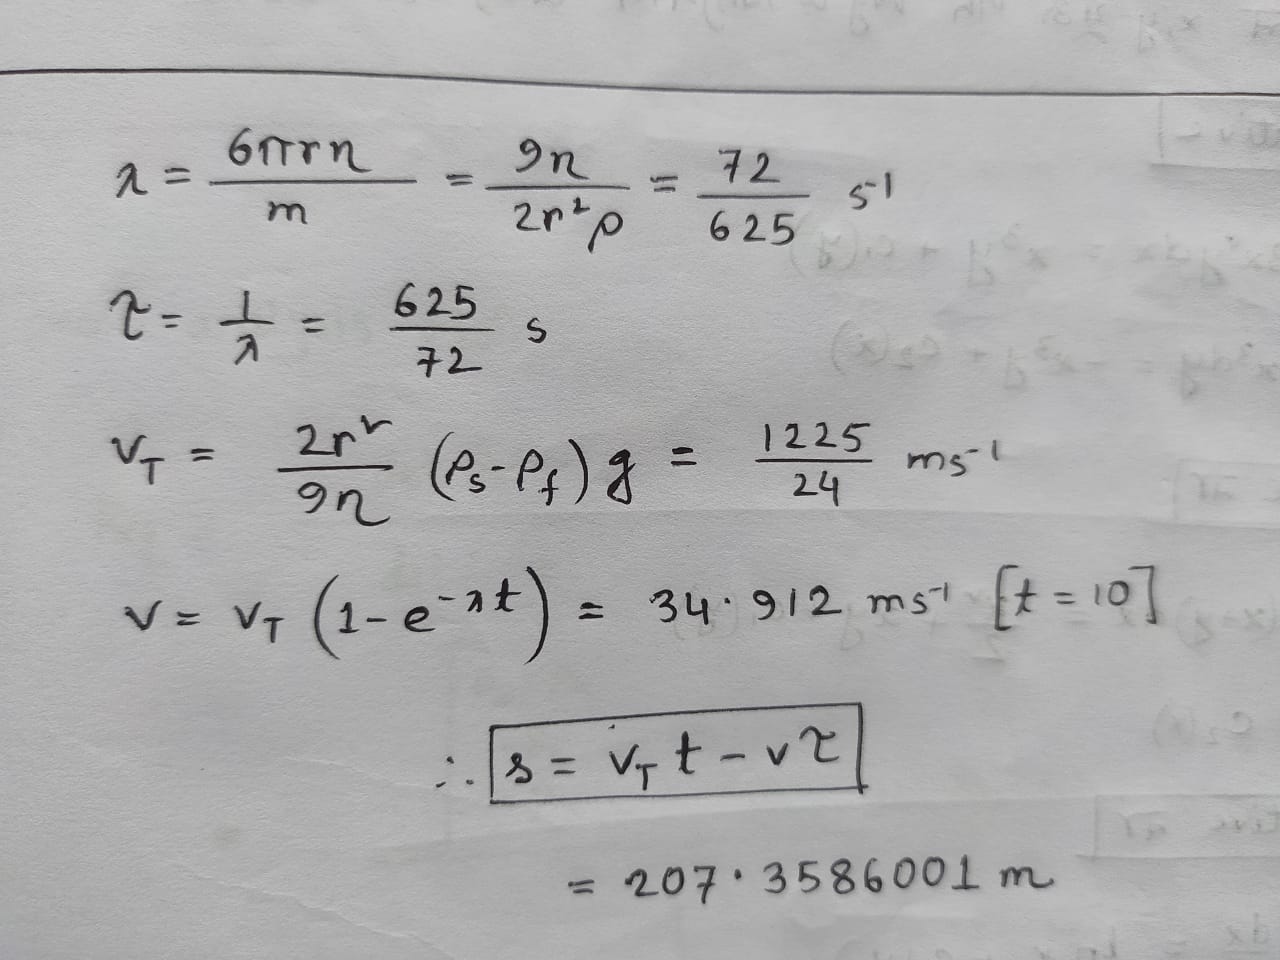 λ = 6πrη / m = 9η / 2r²ρ = 72 / 625 s⁻¹
τ = 1 / λ = 625 / 72 s
v_T = 2r² / 9η (ρ_s - ρ_f) g = 1225 / 24 ms⁻¹
v = v_T (1 - e^(-λt)) = 34.912 ms⁻¹ [t = 10]
∴ s = v_T t - vτ
= 207.3586001 m